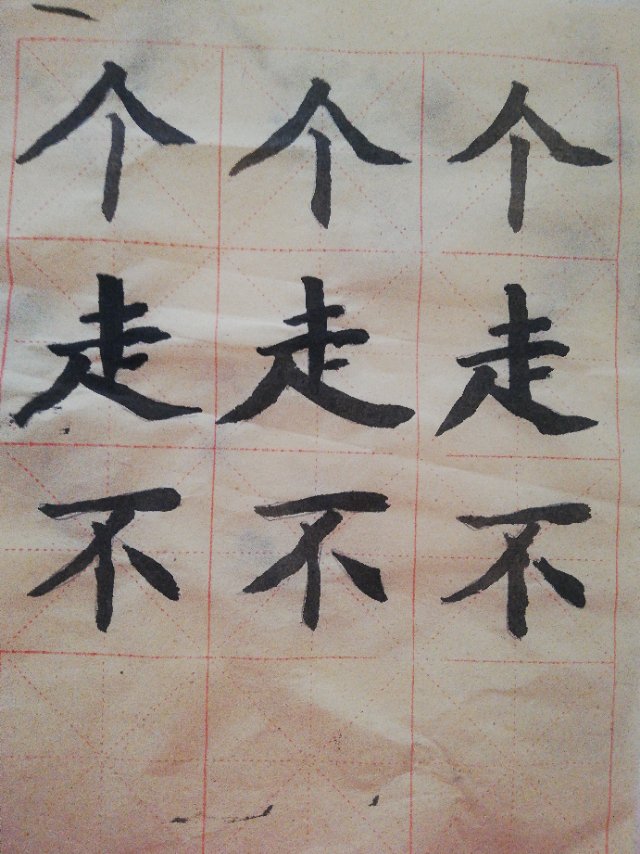 个个个
走走走
不不不